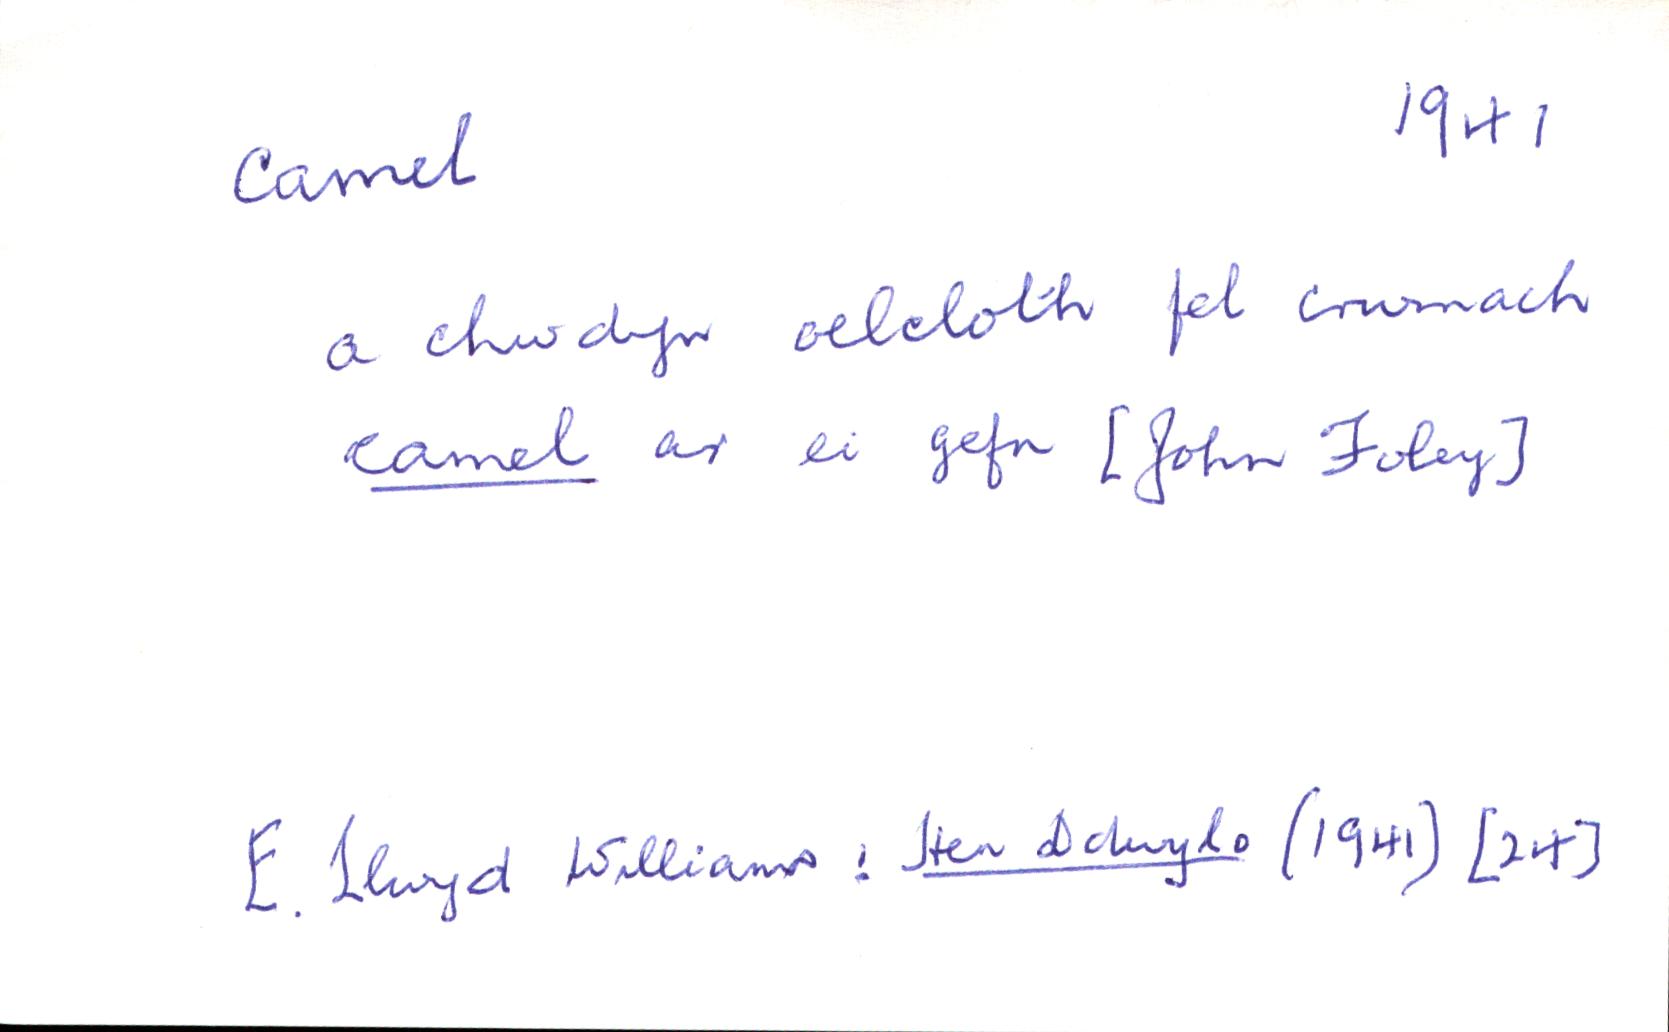 camel 1941
a chwdyn oelcloth fel crwmach
camel ar ei gefn [John Foley]
E. Llwyd Williams : Hen Ddwylo (1941) [24]